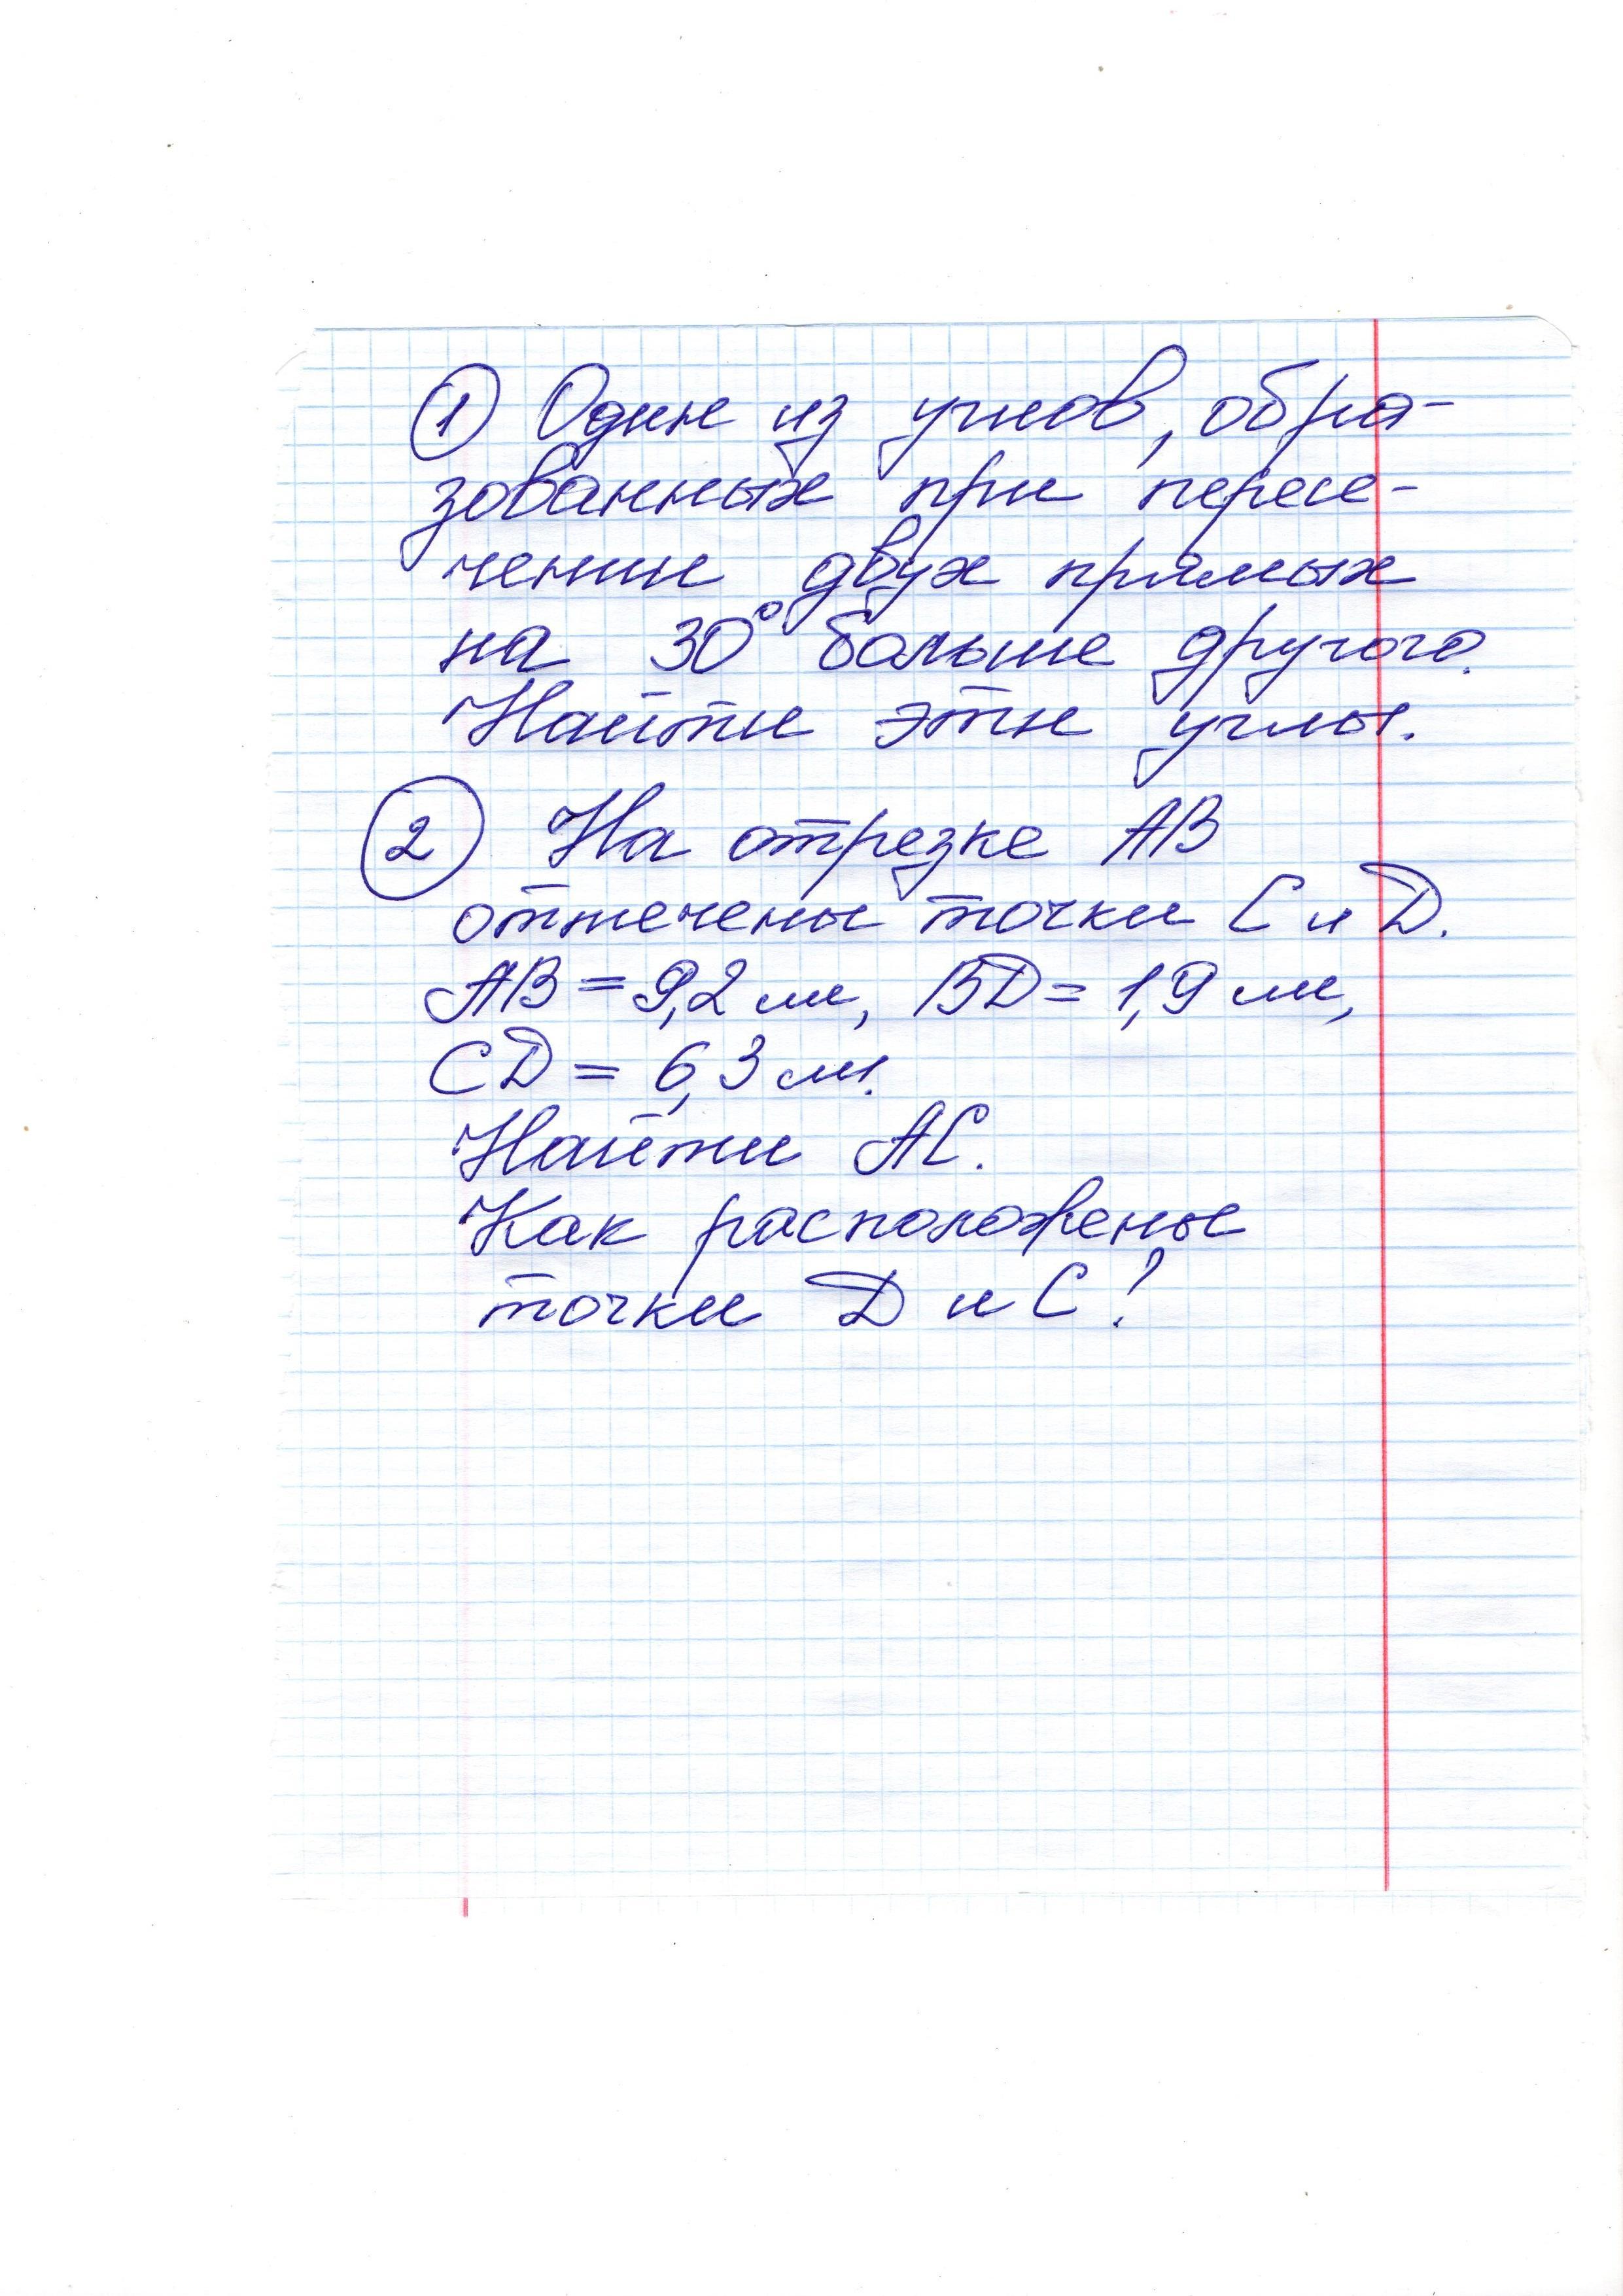 ① Один из углов, обра-
зованных при пересе-
чении двух прямых
на 30° больше другого.
Найти эти углы.
② На отрезке АВ
отмечены точки С и D.
АВ = 9,2 м, BD = 1,9 м,
CD = 6,3 м.
Найти АС.
Как расположены
точки D и С?